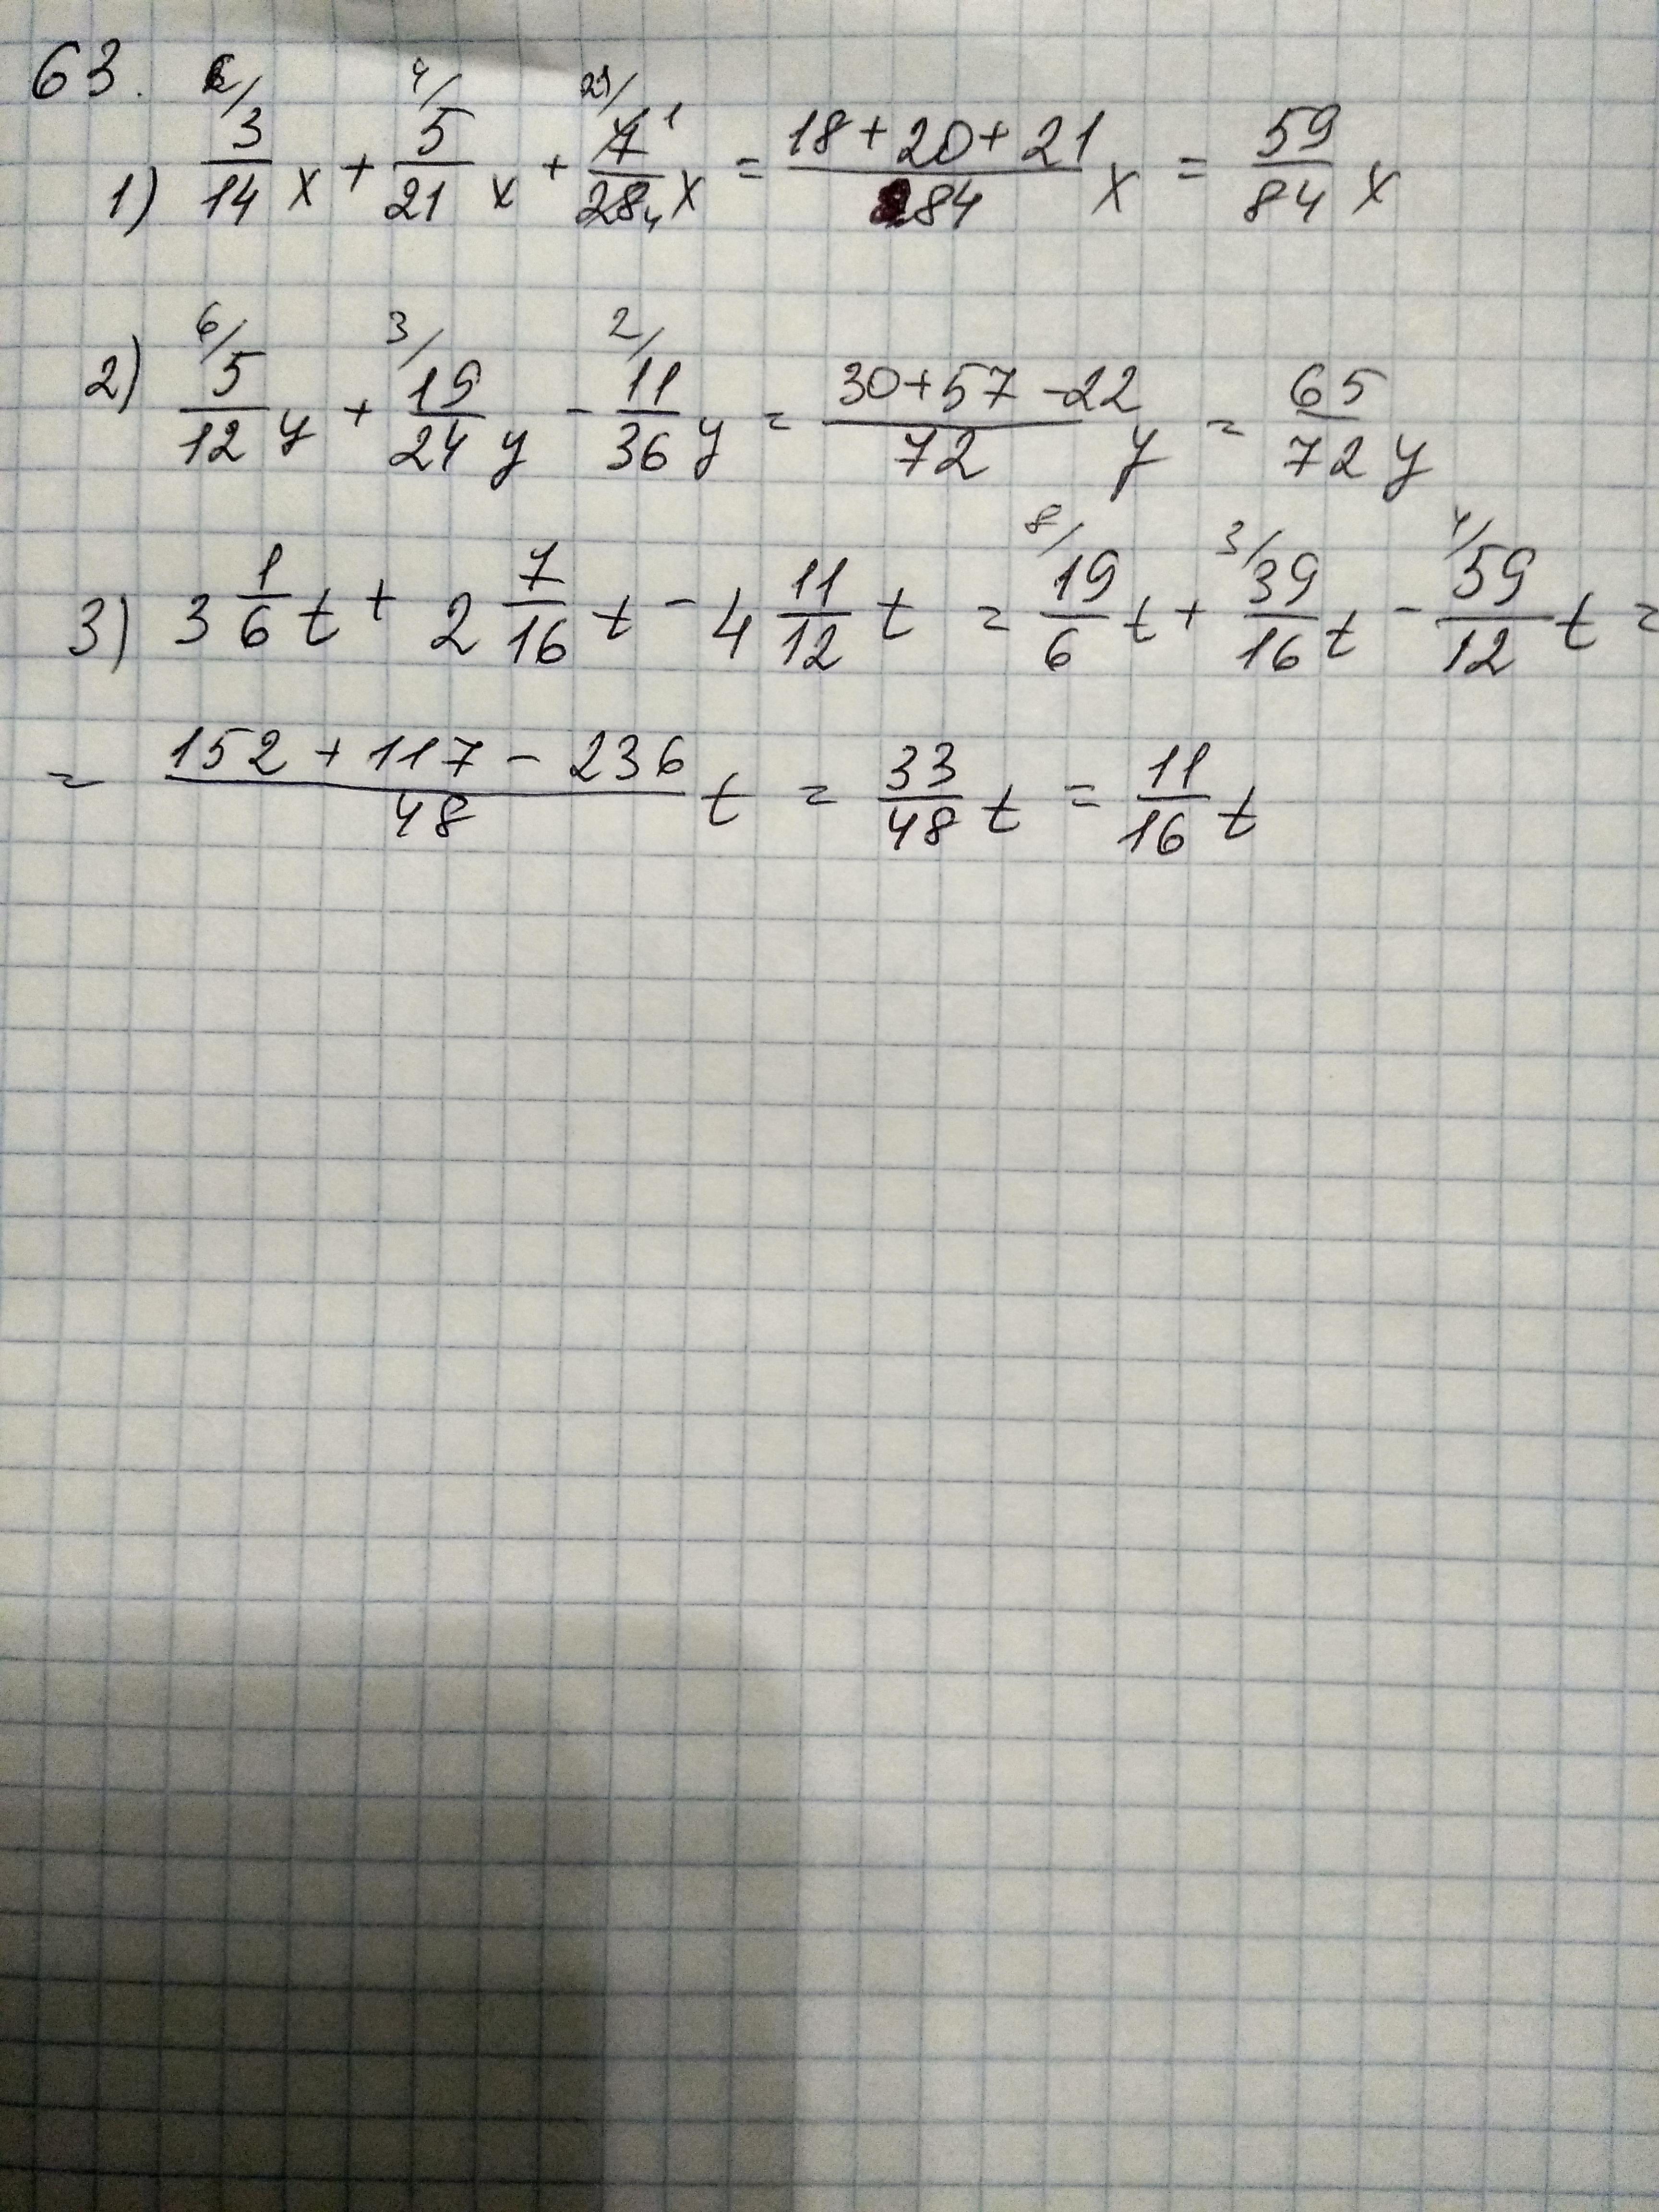 63.
1) 6/ 3/14 x + 4/ 5/21 x + 21/ 7 1/28 4 x = 18+20+21/84 x = 59/84 x
2) 6/ 5/12 y + 3/ 19/24 y - 2/ 11/36 y = 30+57-22/72 y = 65/72 y
3) 3 1/6 t + 2 7/16 t - 4 11/12 t = 8/ 19/6 t + 3/ 39/16 t - 4/ 59/12 t =
= 152 + 117 - 236/48 t = 33/48 t = 11/16 t